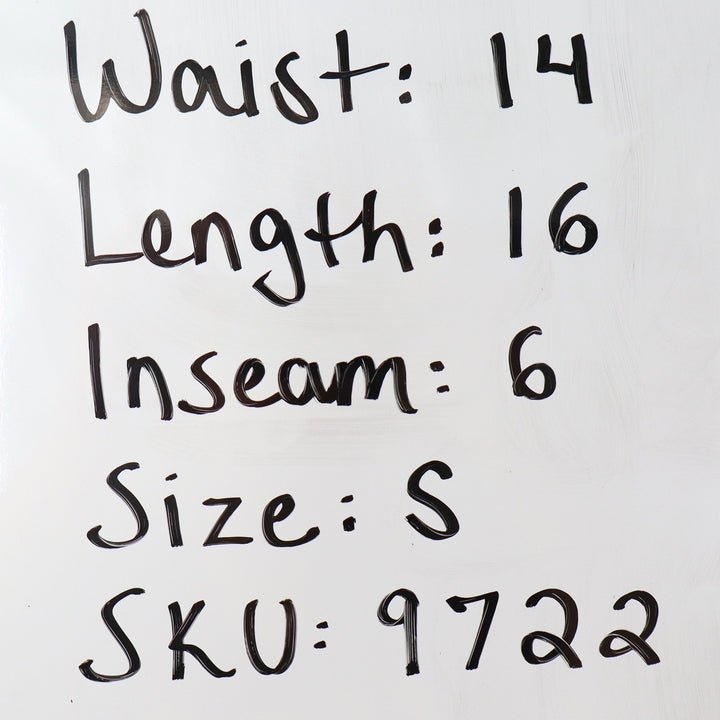 Waist: 14
Length: 16
Inseam: 6
Size: S
SKU: 9722